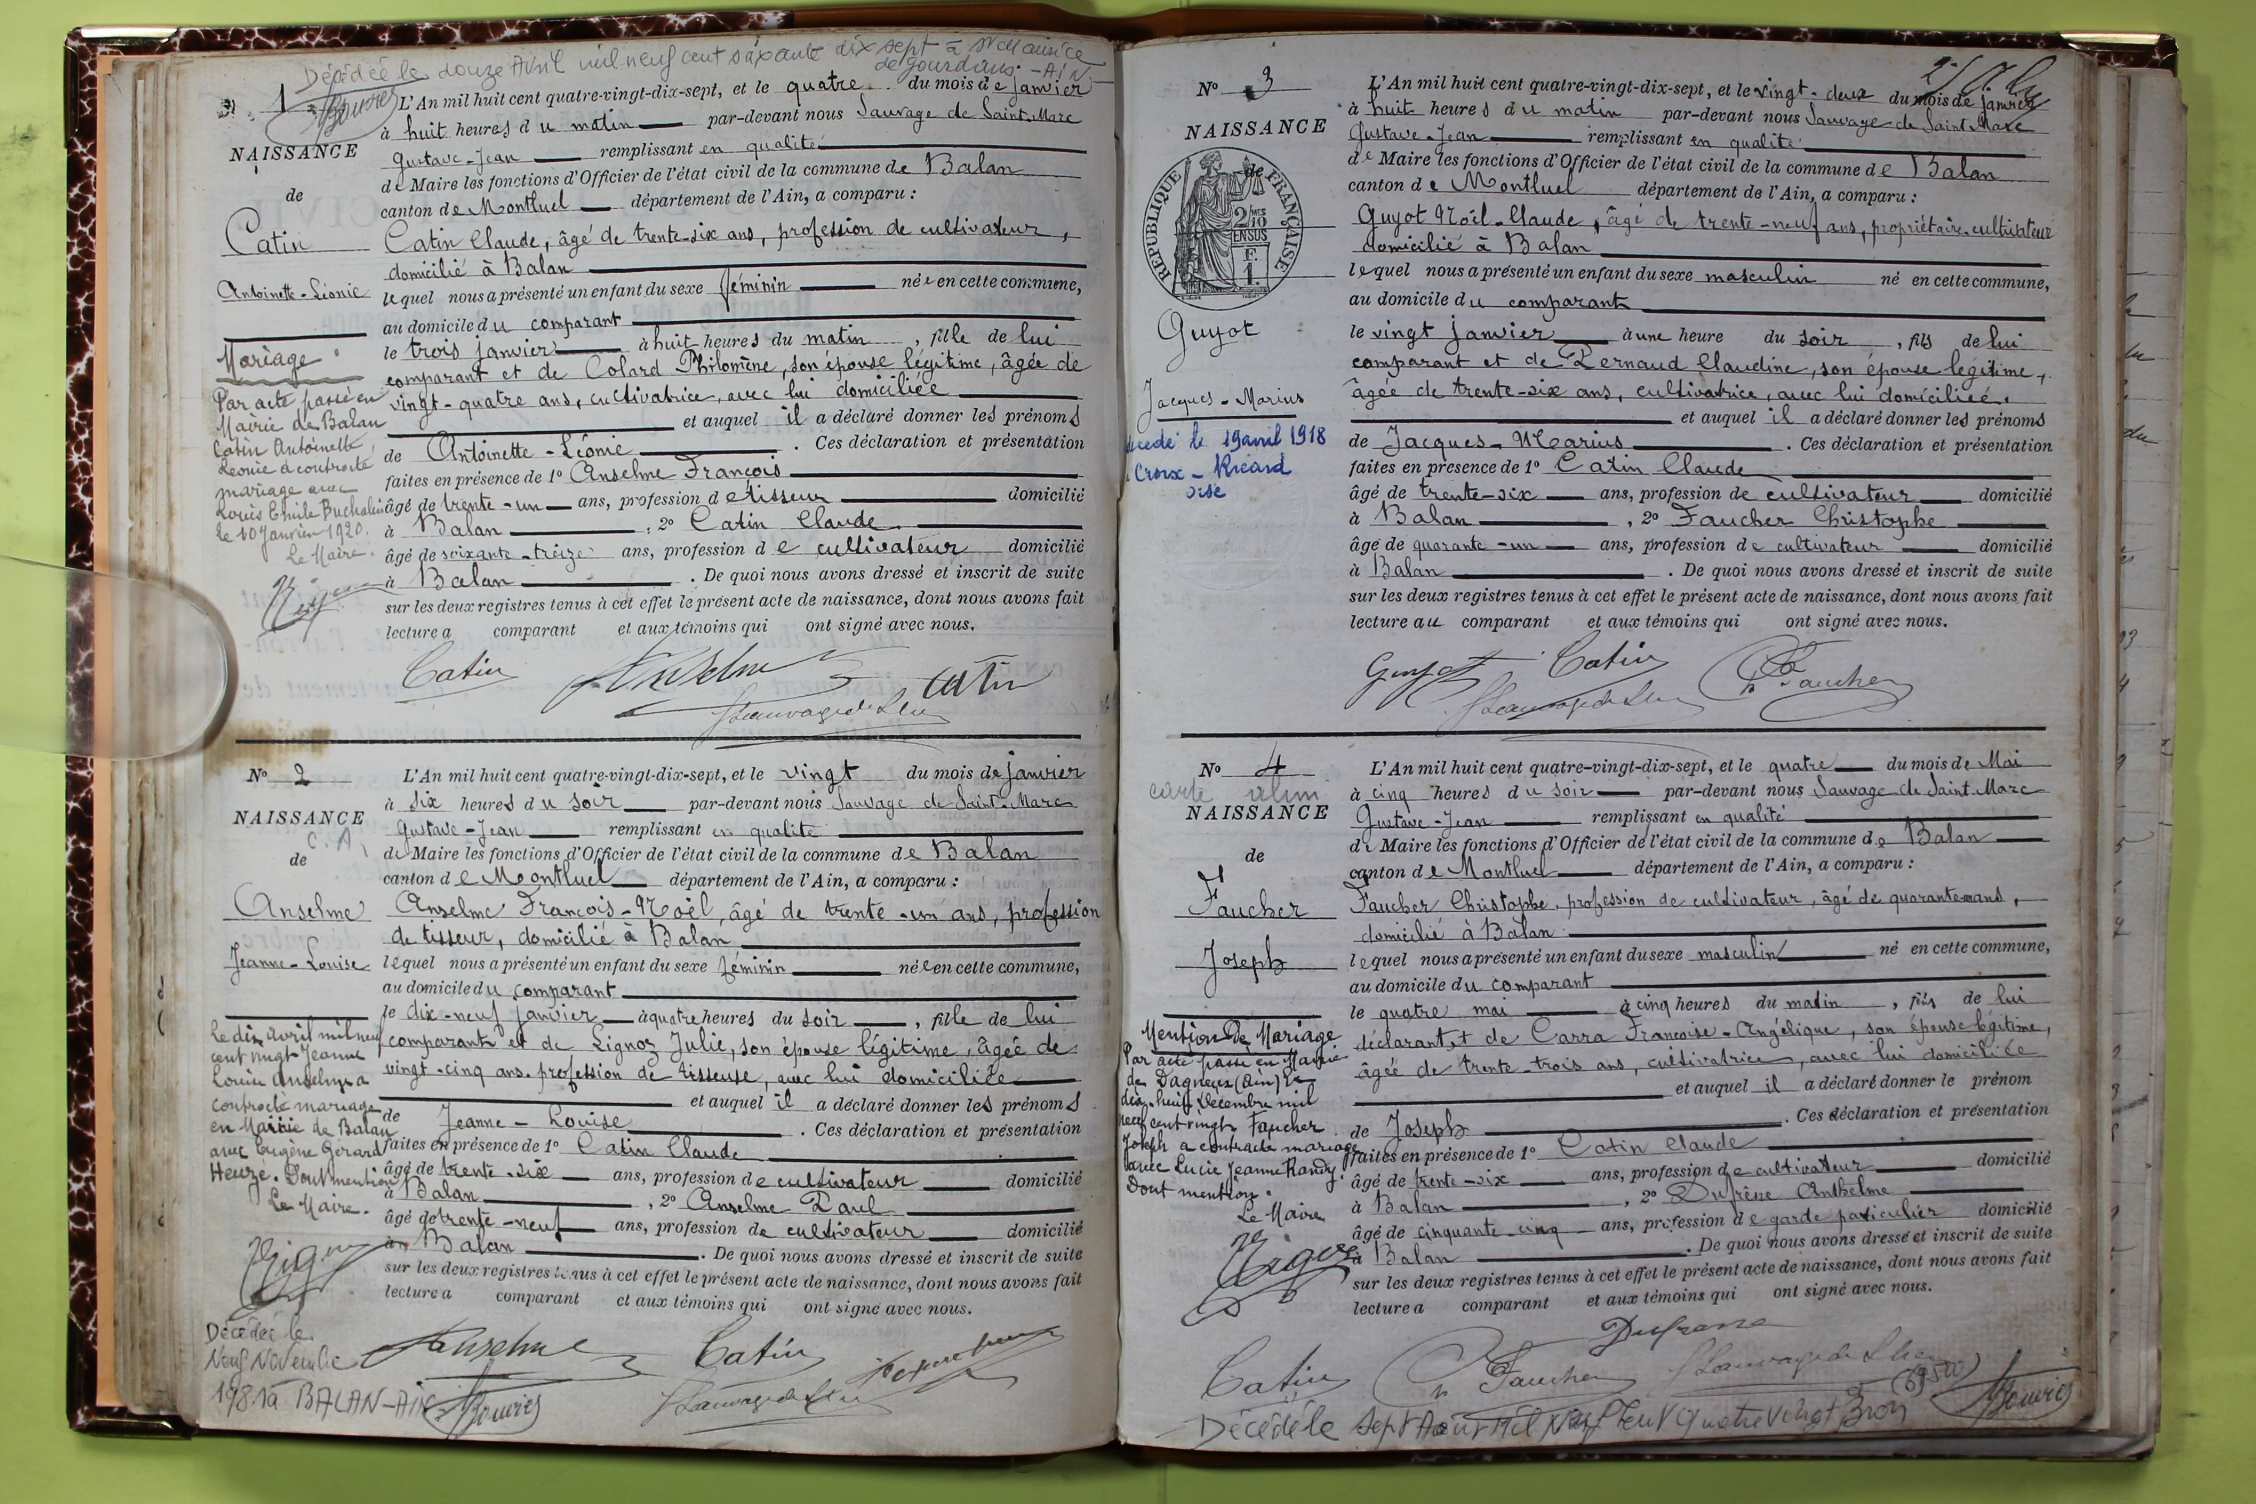 Décédée le douze Avril mil neuf cent soixante dix sept à St Maurice
de Gourdans - AIN -
1
L'An mil huit cent quatre-vingt-dix-sept, et le quatre du mois de janvier
à huit heures du matin par-devant nous Sauvage de Saint-Marc
NAISSANCE
Gustave-Jean remplissant en qualité
de Maire les fonctions d'Officier de l'état civil de la commune de Balan
de
canton de Montluel département de l'Ain, a comparu :
Catin
Catin Claude, âgé de trente-six ans, profession de cultivateur,
domicilié à Balan
Antoinette-Léonie
lequel nous a présenté un enfant du sexe féminin née en cette commune,
au domicile du comparant
le trois janvier à huit heures du matin, fille de lui
comparant et de Colard Philomène, son épouse légitime, âgée de
vingt-quatre ans, cultivatrice, avec lui domiciliée
et auquel il a déclaré donner les prénoms
de Antoinette-Léonie. Ces déclaration et présentation
faites en présence de 1º Anselme François
âgé de trente-un ans, profession de tisseur domicilié
à Balan, 2º Catin Claude
âgé de soixante-treize ans, profession de cultivateur domicilié
à Balan. De quoi nous avons dressé et inscrit de suite
sur les deux registres tenus à cet effet le présent acte de naissance, dont nous avons fait
lecture a comparant et aux témoins qui ont signé avec nous.
Mariage
Par acte passé en
Mairie de Balan
Catin Antoinette
Léonie a contracté
mariage avec
Louis Emile Buchalin
le 10 Janvier 1920.
Le Maire.
Catin Anselme Catin
Sauvage de St Marc
Nº 2
L'An mil huit cent quatre-vingt-dix-sept, et le vingt du mois de janvier
à six heures du soir par-devant nous Sauvage de Saint-Marc
NAISSANCE
C. A,
Gustave-Jean remplissant en qualité
de
de Maire les fonctions d'Officier de l'état civil de la commune de Balan
canton de Montluel département de l'Ain, a comparu :
Anselme
Anselme François-Noël, âgé de trente-un ans, profession
de tisseur, domicilié à Balan
Jeanne-Louise
lequel nous a présenté un enfant du sexe féminin née en cette commune,
au domicile du comparant
le dix-neuf janvier à quatre heures du soir, fille de lui
comparant et de Lignoz Julie, son épouse légitime, âgée de
vingt-cinq ans, profession de tisseuse, avec lui domiciliée
et auquel il a déclaré donner les prénoms
de Jeanne-Louise. Ces déclaration et présentation
faites en présence de 1º Catin Claude
âgé de trente-six ans, profession de cultivateur domicilié
à Balan, 2º Anselme Paul
âgé de trente-neuf ans, profession de cultivateur domicilié
à Balan. De quoi nous avons dressé et inscrit de suite
sur les deux registres tenus à cet effet le présent acte de naissance, dont nous avons fait
lecture a comparant et aux témoins qui ont signé avec nous.
Le dix avril mil neuf
cent vingt Jeanne
Louise Anselme a
contracté mariage
en Mairie de Balan
avec Eugène Gerard
Heuze. Dont mention
Le Maire.
Décédée le
Neuf Novembre
1981 à BALAN-AIN
Anselme Catin
Sauvage de St Marc
Nº 3
L'An mil huit cent quatre-vingt-dix-sept, et le vingt-deux du mois de janvier
à huit heures du matin par-devant nous Sauvage de Saint-Marc
NAISSANCE
Gustave-Jean remplissant en qualité
de
de Maire les fonctions d'Officier de l'état civil de la commune de Balan
canton de Montluel département de l'Ain, a comparu :
RÉPUBLIQUE FRANÇAISE
2/10 MES
EN SUS
F.
1.
Guyot Noël-Claude, âgé de trente-neuf ans, propriétaire-cultivateur
domicilié à Balan
lequel nous a présenté un enfant du sexe masculin né en cette commune,
au domicile du comparant
Guyot
le vingt janvier à une heure du soir, fils de lui
comparant et de Pernaud Claudine, son épouse légitime,
Jacques-Marius
âgée de trente-six ans, cultivatrice, avec lui domiciliée.
et auquel il a déclaré donner les prénoms
de Jacques-Marius. Ces déclaration et présentation
faites en présence de 1º Catin Claude
âgé de trente-six ans, profession de cultivateur domicilié
à Balan, 2º Faucher Christophe
âgé de quarante-un ans, profession de cultivateur domicilié
à Balan. De quoi nous avons dressé et inscrit de suite
sur les deux registres tenus à cet effet le présent acte de naissance, dont nous avons fait
lecture au comparant et aux témoins qui ont signé avec nous.
19 avril 1918
Croix-Ricard
oise
Guyot Catin Faucher
Sauvage de St Marc
Nº 4
carte alim
L'An mil huit cent quatre-vingt-dix-sept, et le quatre du mois de Mai
à cinq heures du soir par-devant nous Sauvage de Saint-Marc
NAISSANCE
Gustave-Jean remplissant en qualité
de Maire les fonctions d'Officier de l'état civil de la commune de Balan
de
canton de Montluel département de l'Ain, a comparu :
Faucher
Faucher Christophe, profession de cultivateur, âgé de quarante un ans,
domicilié à Balan
Joseph
lequel nous a présenté un enfant du sexe masculin né en cette commune,
au domicile du comparant
le quatre mai à cinq heures du matin, fils de lui
déclarant et de Carra Françoise-Angélique, son épouse légitime,
âgée de trente-trois ans, cultivatrice, avec lui domiciliée
et auquel il a déclaré donner le prénom
de Joseph. Ces déclaration et présentation
faites en présence de 1º Catin Claude
âgé de trente-six ans, profession de cultivateur domicilié
à Balan, 2º Dufrêne Anthelme
âgé de cinquante-cinq ans, profession de garde particulier domicilié
à Balan. De quoi nous avons dressé et inscrit de suite
sur les deux registres tenus à cet effet le présent acte de naissance, dont nous avons fait
lecture a comparant et aux témoins qui ont signé avec nous.
Mention de Mariage
Par acte passé en Mairie
de Dagneux (Ain) le
dix-huit Décembre mil
neuf cent vingt Faucher
Joseph a contracté mariage
avec Lucie Jeanne Randy.
Dont mention.
Le Maire
Catin Faucher
Sauvage de St Marc
Décédé le sept Août Mil Neuf Cent Quatre Vingt Bron (69500)